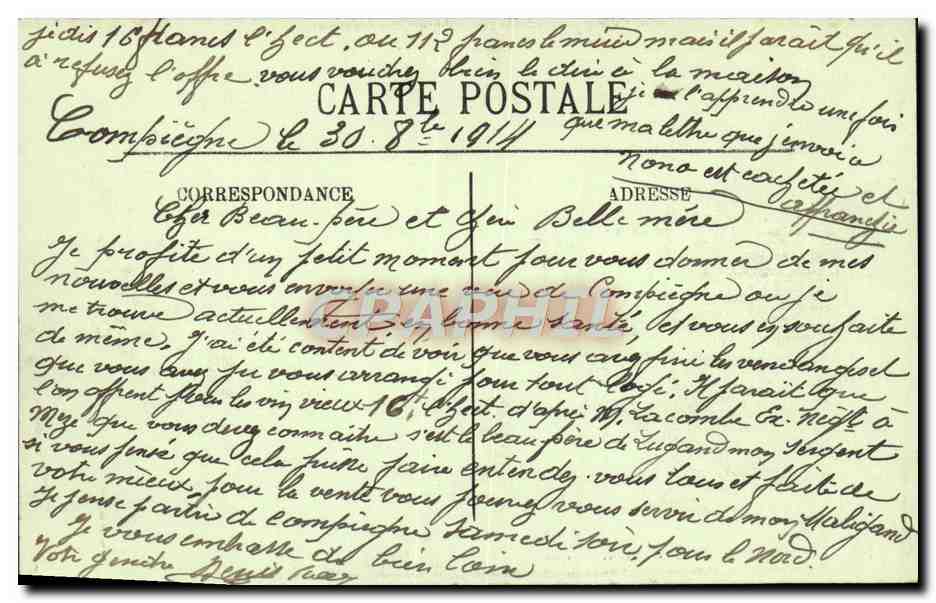 je dis 16 francs l'hect, ou 112 francs le muid mais il parait qu'il
à refusez l'offre vous voudrez bien le dire à la maison
CARTE POSTALE
je l'apprendre une fois
que ma lettre que j'envoi à
Nono est cachetée et
affranchie
Compiègne le 30. 8bre 1914
CORRESPONDANCE
ADRESSE
Cher Beau-père et chère Belle mère
Je profite d'un petit moment pour vous donner de mes
nouvelles et vous envoyer une vue de Compiègne ou je
me trouve actuellement en bonne santé, et vous en souhaite
de même. J'ai été content de voir que vous avez fini les vendanges et
que vous avez pu vous arrangé pour tout logé. Il parait que
l'on offrent pour les vin vieux 16f l'hect. d'après M. Lacombe Ex. Negt à
Mèze que vous devez connaitre s'est le beau-père de Lugand mon Sergent
si vous pensé que cela puisse faire entendez-vous tous et faite de
votre mieux pour la vente vous pouvez vous servir de mon Maligand
Je pense partir de Compiègne Samedi soir, pour le Nord.
Je vous embrasse de bien loin
Votre gendre Denis
CPAPHIL